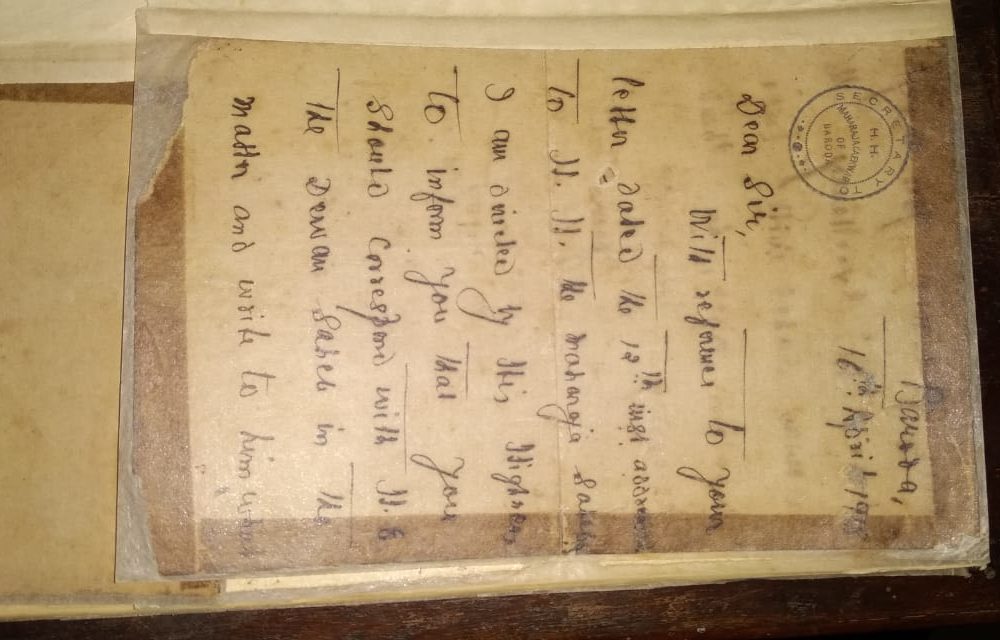 SECRETARY TO
H.H.
MAHARAJA GAEKWAR
OF
BARODA
Baroda,
16th April
Dear Sir,
With reference to your
letter dated the 12th inst. addressed
to H. H. the Maharaja Saheb
I am directed by His Highness
to inform you that you
should correspond with H. E
the Dewan Saheb in the
matter and write to him